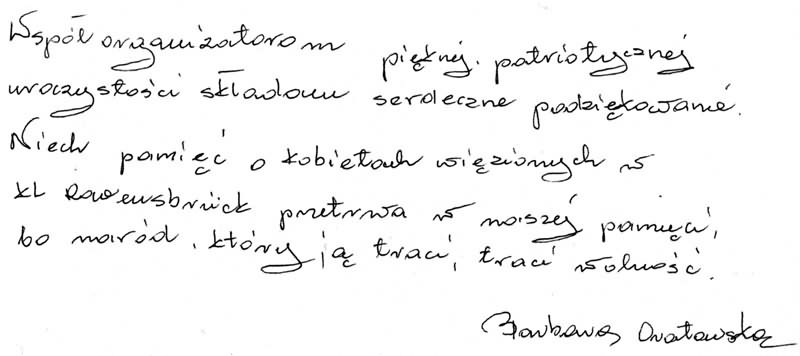 Współorganizatorom pięknej, patriotycznej
uroczystości składam serdeczne podziękowanie.
Niech pamięć o kobietach więzionych w
KL Rawensbrück przetrwa w naszej pamięci,
bo naród, który ją traci, traci wolność.
Barbara Oratowska